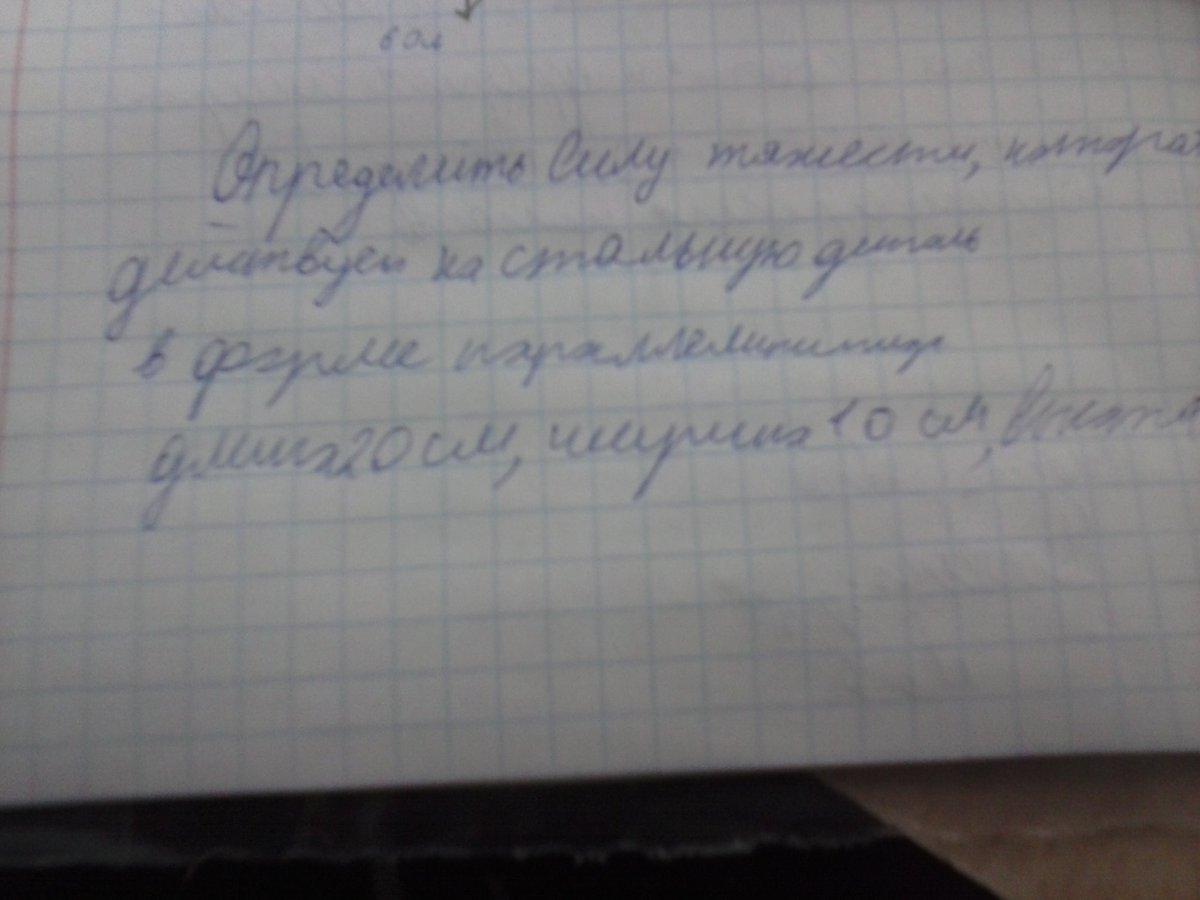 Определить Силу тяжести, которая
действует на стальную деталь
в форме параллелипипеда
длина 20 см, ширина 10 см,